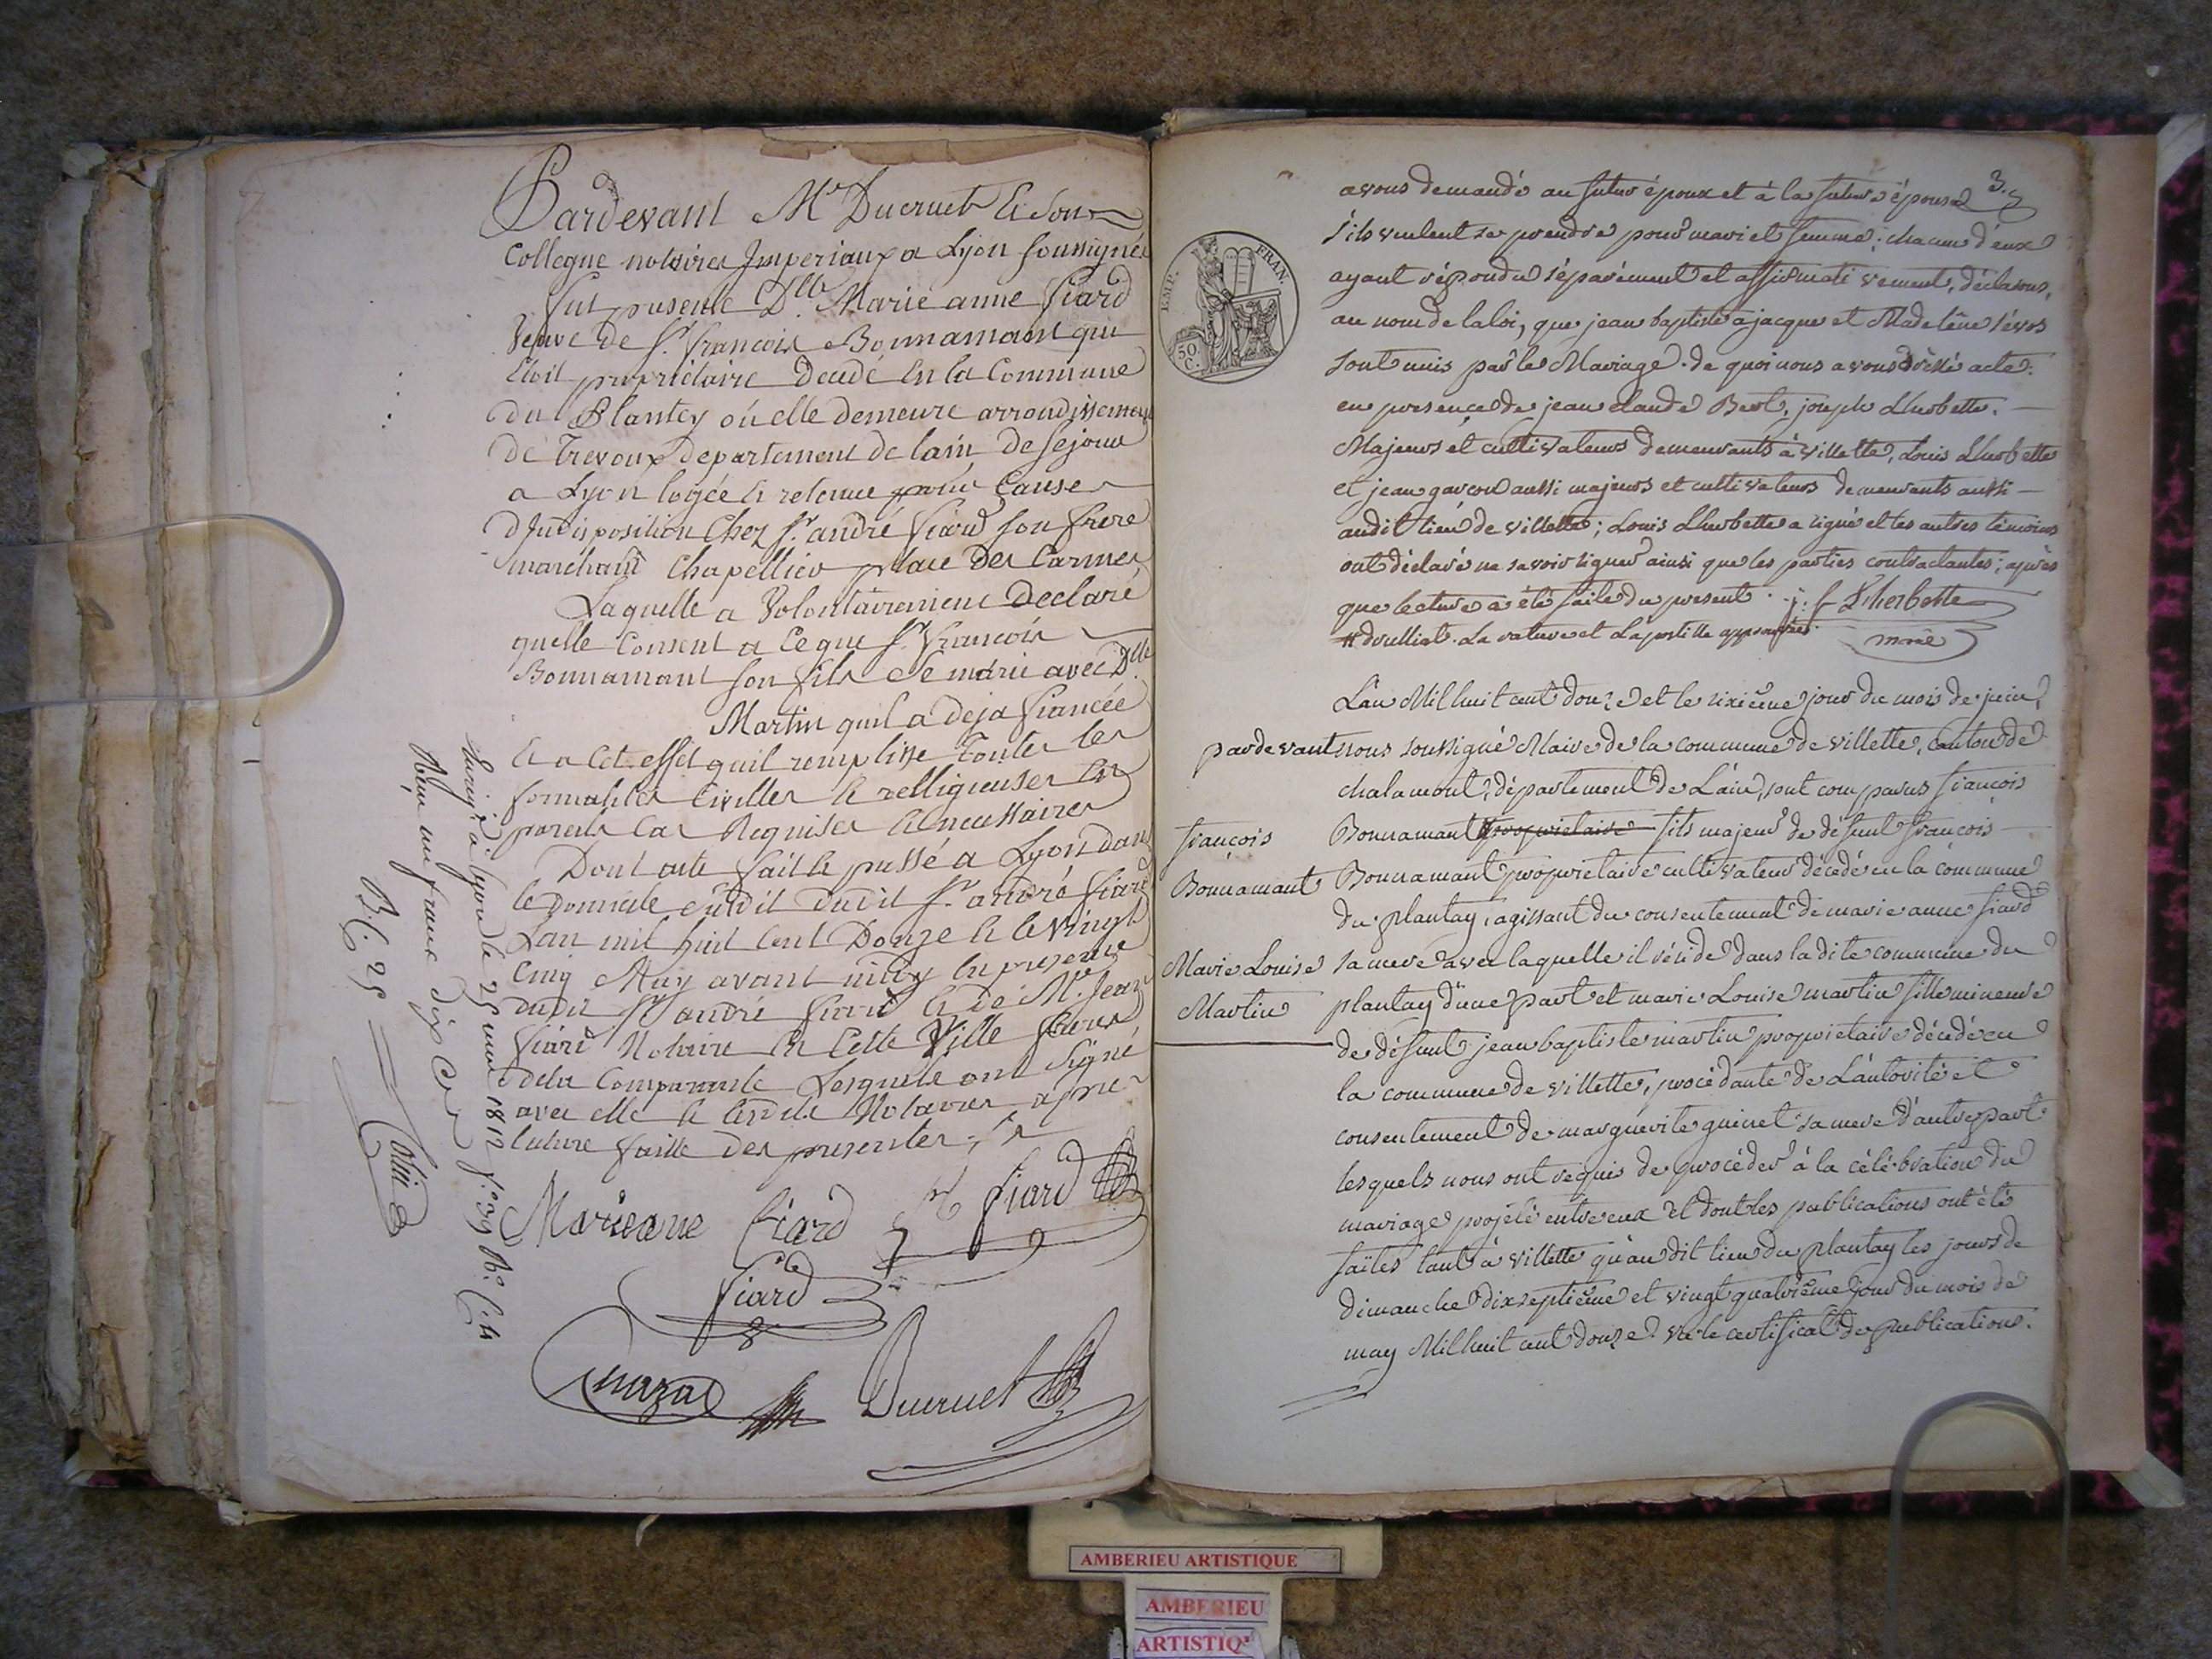 Pardevant Me Ducruet & Son
Collegue notaires Imperiaux a Lyon soussignés
fut presente Dlle Marie anne fiard
Veuve de Sr françois Bonnamant qui
Etoit propriétaire décédé en la Commune
du Plantey où elle demeure arrondissement
de Trevoux departement de lain de Sejour
a Lyon logée & retenue pour Cause
d'Indisposition Chez Sr andré fiard son frere
marchand Chapellier place des Carmes
Laquelle a Volontairement Declaré
quelle Consent a Ceque Sr françois
Bonnamant son fils Se marie avec Dlle
Martin quil a deja fiancée
Et a Cet effet quil remplisse Toutes les
formalités Civilles & relligieuses En
pareils Cas Requises & necessaires
Dont acte fait & passé a Lyon dans
le Domicile susdit dudit Sr andré fiard
Lan mil huit Cent Douze & le Vingt
Cinq May avant midy En presence
dudit Sr andré fiard & de Me Jean
fiard Notaire En Cette Ville freres
dela Comparante Lesquels ont Signé
avec elle & lesdits Notaires apres
lecture faitte des presentes
Marieanne fiard fiard
fiard
Ducruet
Enreg. à Lyon le 25 mai 1812 fo 39 Ro C. 4
Reçu un franc dix Cmes
R. C. 25
3.
avons demandé au futur époux et à la future épouse
s'ils veulent se prendre pour mari et femme; chacun d'eux
ayant répondu séparément et affirmativement, déclarons,
au nom de la loi, que jean baptiste ajacque et Madeléne sévos
sont unis par le Mariage. de quoi nous avons dréssé acte.
en présence de jean claude Bert, joseph Lherbette.
Majeurs et cultivateurs demeurants à villette, Louis Lherbette
et jean garçon aussi majeurs et cultivateurs demeurants aussi
audit lieu de villette; Louis Lherbette a signé et les autres témoins
ont déclaré ne savoir signer ainsi que les parties contractantes; après
que lecture a été faite du présent. j: f Lherbette
# drulliat. La rature et Lapostille approuvées. maire
IEMP. FRAN.
50 C.
L'an Mil huit cent douze et le sixième jour du mois de juin,
pardevant nous soussigné Maire de la commune de villette, canton de
chalamont, département de L'ain, sont comparus françois
françois Bonnamant propriétaire fils majeur de défunt françois
Bonnamant Bonnamant propriétaire cultivateur décédé en la commune
du plantay, agissant du consentement de marie anne fiard
Marie Louise sa mere avec laquelle il réside dans la dite commune du
Martin plantay d'une part et marie Louise martin fille mineure
de défunt jean baptiste martin propriétaire décédé en
la commune de villette, procédante de L'autorité et
consentement de marguérite guinet sa mere d'autre part
lesquels nous ont réquis de procéder à la célébration du
mariage projeté entre eux et dont les publications ont étés
faites tant à villette qu'au dit lieu du plantay les jours de
dimanche dixseptième et vingt quatrième jour du mois de
may Mil huit cent douze. vu le certificat de publications.
AMBERIEU ARTISTIQUE
AMBERIEU
ARTISTIQ